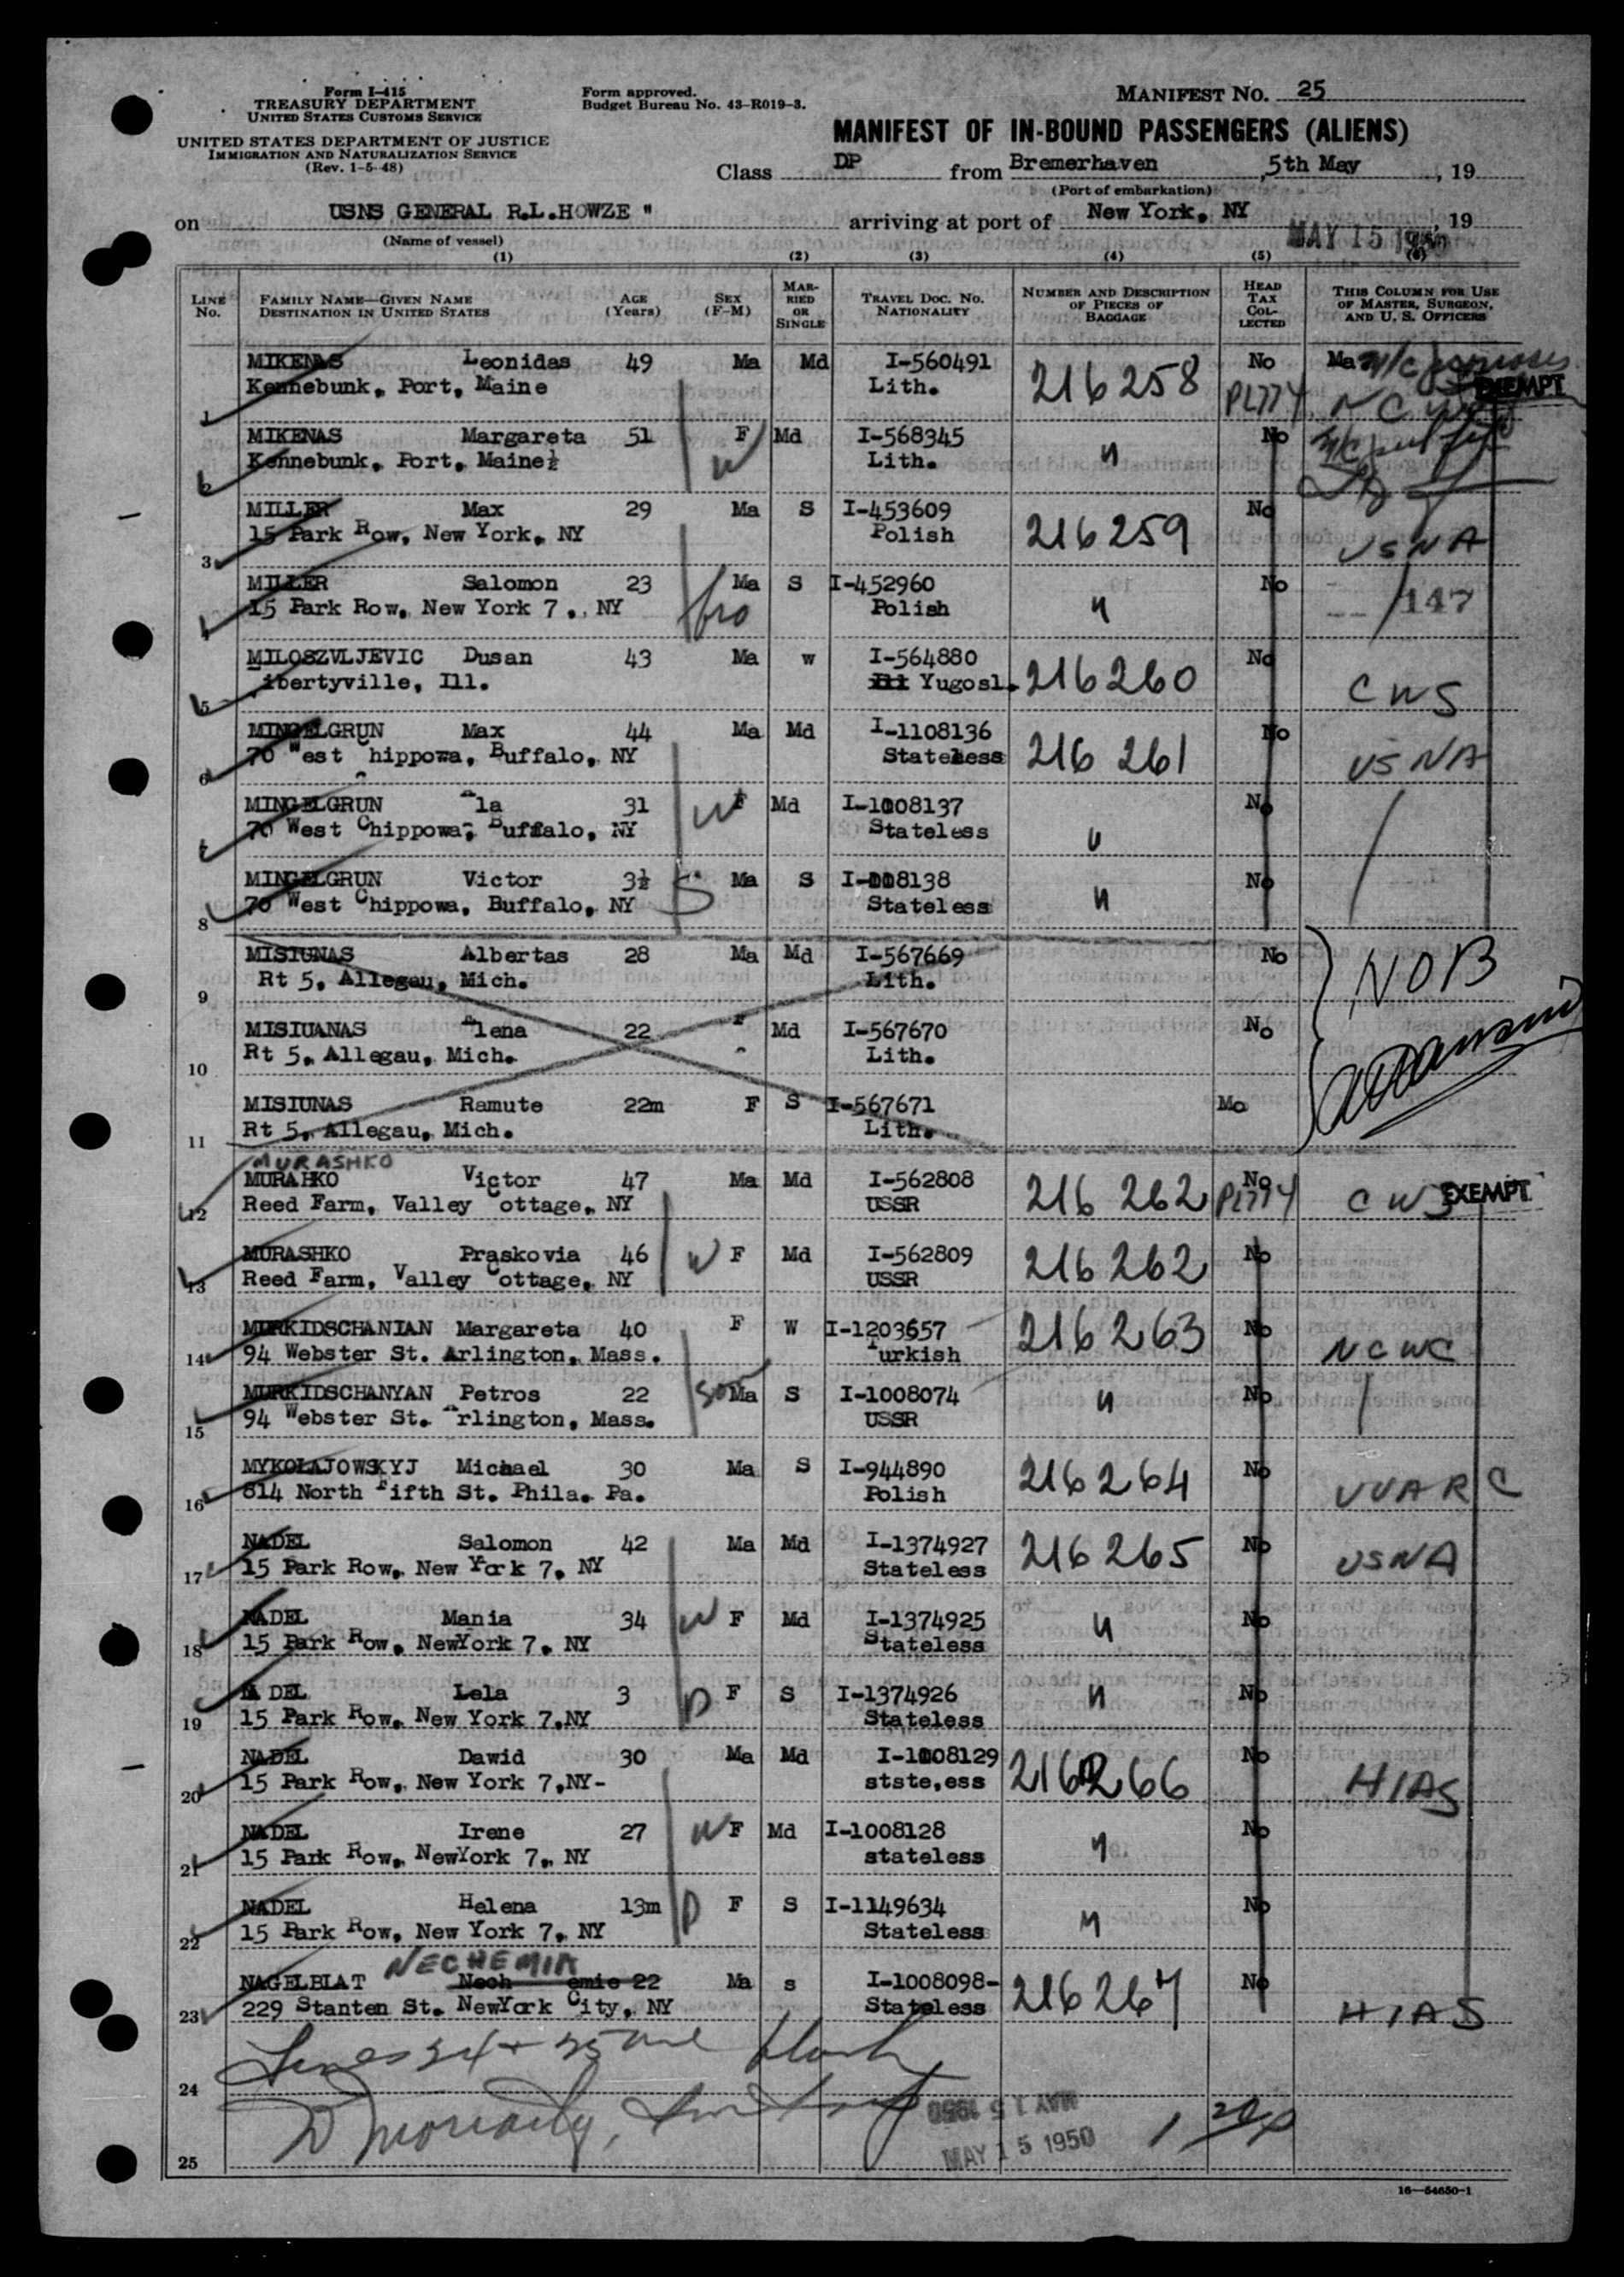 Form I-415
TREASURY DEPARTMENT
UNITED STATES CUSTOMS SERVICE
UNITED STATES DEPARTMENT OF JUSTICE
IMMIGRATION AND NATURALIZATION SERVICE
(Rev. 1-5-48)
Form approved.
Budget Bureau No. 43-R019-3.
MANIFEST NO. 25
MANIFEST OF IN-BOUND PASSENGERS (ALIENS)
Class DP from Bremerhaven, 5th May, 19
(Port of embarkation)
on USNS GENERAL R.L.HOWZE " arriving at port of New York, NY 19
(Name of vessel) MAY 15 1950
(1) (2) (3) (4) (5) (6)
LINE No. FAMILY NAME—GIVEN NAME DESTINATION IN UNITED STATES AGE (Years) SEX (F-M) MARRIED OR SINGLE TRAVEL DOC. NO. NATIONALITY NUMBER AND DESCRIPTION OF PIECES OF BAGGAGE HEAD TAX COLLECTED THIS COLUMN FOR USE OF MASTER, SURGEON, AND U. S. OFFICERS
MIKENAS Leonidas 49 Ma Md I-560491 216258 No Ma
1 Kennebunk, Port, Maine Lith. PL774 NCWC EXEMPT
MIKENAS Margareta 51 F Md I-568345 " No
2 Kennebunk, Port, Maine½ W Lith.
MILLER Max 29 Ma S I-453609 216259 No
3 15 Park Row, New York, NY Polish USNA
MILLER Salomon 23 Ma S I-452960 " No
4 15 Park Row, New York 7., NY bro Polish 147
MILOSZVLJEVIC Dusan 43 Ma w I-564880 216260 No
5 ibertyville, Ill. Ill Yugosl. CWS
MINGELGRUN Max 44 Ma Md I-1108136 216 261 No
6 70 West Chippowa, Buffalo, NY Stateless USNA
MINGELGRUN la 31 W F Md I-1008137 " No
7 70 West Chippowa, Buffalo, NY Stateless
MINGELGRUN Victor 3½ S Ma S I-1008138 " No
8 70 West Chippowa, Buffalo, NY Stateless
MISIUNAS Albertas 28 Ma Md I-567669 No
9 Rt 5, Allegau, Mich. Lith. NOB
MISIUANAS lena 22 F Md I-567670 No
10 Rt 5, Allegau, Mich. Lith.
MISIUNAS Ramute 22m F S I-567671 Mo
11 Rt 5, Allegau, Mich. Lith.
MURASHKO
MURAHKO Victor 47 Ma Md I-562808 216 262 No
12 Reed Farm, Valley Cottage, NY USSR PL774 CWS EXEMPT
MURASHKO Praskovia 46 W F Md I-562809 216 262 No
13 Reed Farm, Valley Cottage, NY USSR
MURKIDSCHANIAN Margareta 40 F W I-1203657 216263 No
14 94 Webster St. Arlington, Mass. Turkish NCWC
MURKIDSCHANYAN Petros 22 son Ma S I-1008074 " No
15 94 Webster St. Arlington, Mass. USSR
MYKOLAJOWSKYJ Michael 30 Ma S I-944890 216264 No
16 814 North Fifth St. Phila. Pa. Polish UUARC
NADEL Salomon 42 Ma Md I-1374927 216265 No
17 15 Park Row, New York 7, NY Stateless USNA
NADEL Mania 34 W F Md I-1374925 " No
18 15 Park Row, NewYork 7, NY Stateless
NADEL Lela 3 D F S I-1374926 " No
19 15 Park Row, New York 7,NY Stateless
NADEL Dawid 30 Ma Md I-1008129 216266 No
20 15 Park Row, New York 7,NY- stste,ess HIAS
NADEL Irene 27 W F Md I-1008128 " No
21 15 Park Row, NewYork 7, NY stateless
NADEL Helena 13m D F S I-1149634 " No
22 15 Park Row, New York 7, NY Stateless
NECHEMIA
NAGELBLAT Nech emie 22 Ma s I-1008098- 216267 No
23 229 Stanten St. NewYork City, NY Stateless HIAS
Lines 24 + 25 are blank
24
D Moriarty,
MAY 15 1950
MAY 15 1950
25
16—54650-1